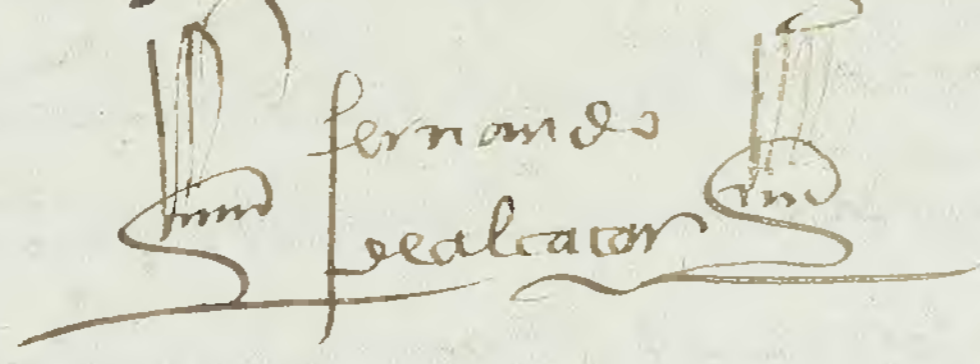 fernando
dealcacor